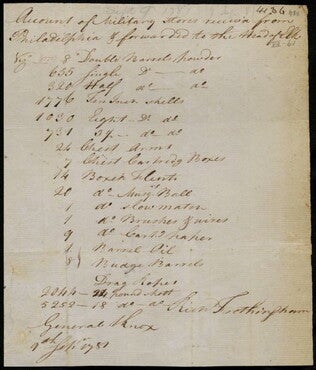 Account of Military Stores receivd from
Philadelphia & forwarded to the Head of Elk
Viz 8 Double Barrels powder
635 Single Do do
320 Half do do
1776 Ten Inch shells
1030 Eight Do do
731 5½ do do
24 Chest Arms
7 Chest Cartridg Boxes
14 Boxes Flints
20 do Musqt Ball
1 do Slow match
1 do Brushes & wires
9 do Cartg paper
1 Barrel Oil
8 Budge Barrels
Drag Ropes
2044 24 pound Shott
5252 18 do do
Richd Frothingham
General Knox
9th Sept 1781